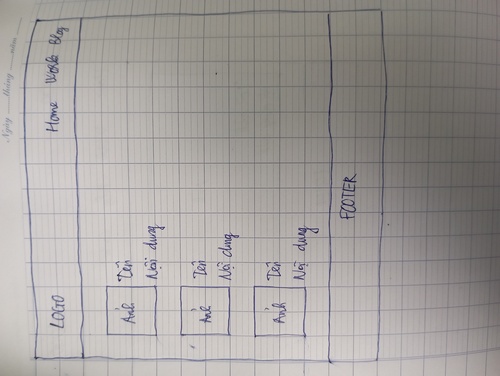 Ngày tháng năm
LOGO Home Works Blog
Ảnh Tên
Nội dung
Ảnh Tên
Nội dung
Ảnh Tên
Nội dung
FOOTER